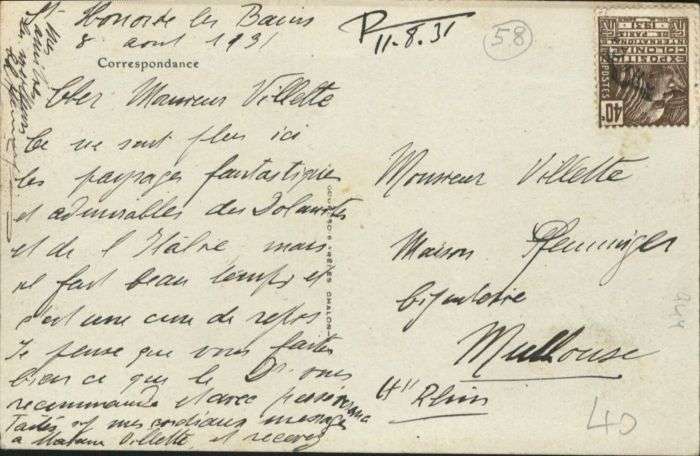 les Bains
8 aout 1931
R 11-8.31
58
Correspondance
Cher Monsieur Villette
Ce ne sont plus ici
les paysages fantastiques
et admirables des Dolomites
et de l'Italie mais
il fait beau temps et
c'est une cure de repos
Je pense que vous faites
bien ce que le Dr vous
recommande et avec
Faites mes cordiaux messages
a Madame Villette, et recevez
EXPOSITION
COLONIALE
INTERNATIONALE
DE PARIS
1931
POSTES
40c
Monsieur Villette
Maison Pfenninger
Bijouterie
Mulhouse
Ht Rhin
944
40